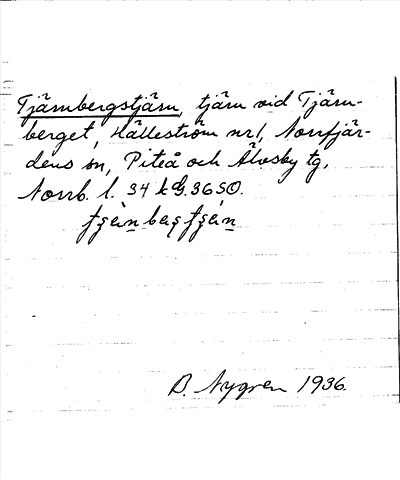 Tjärnbergstjärn, tjärn vid Tjärn-
berget, Hälleström nr 1, Norrfjär-
dens sn, Piteå och Älvsby tg,
Norrb. l. 34 k G. 36 SO.
B. Nygren 1936.